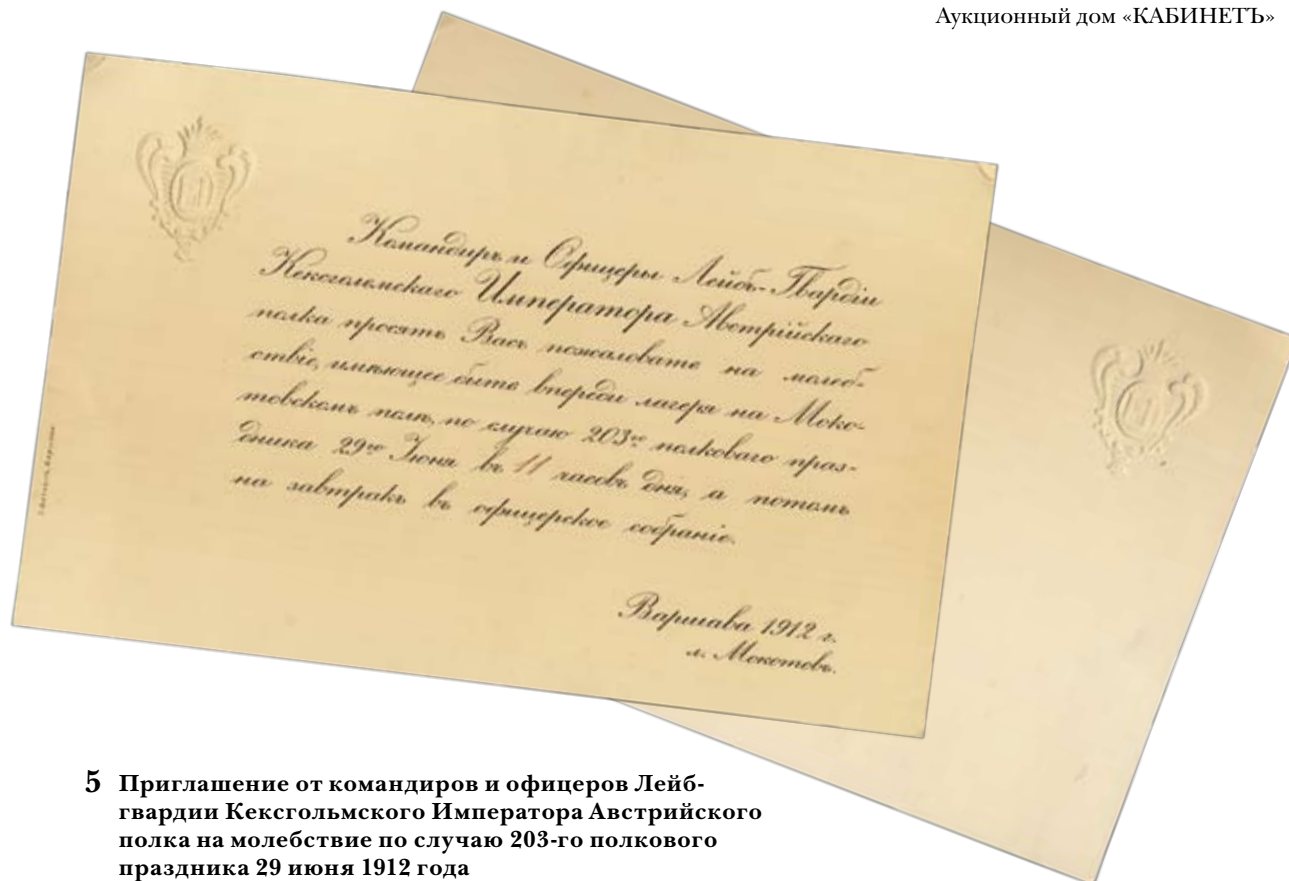 Аукционный дом «КАБИНЕТЪ»
Командиръ и Офицеры Лейбъ-Гвардіи
Кексгольмскаго Императора Австрійскаго
полка просятъ Васъ пожаловать на молеб-
ствіе, имѣющее быть впереди лагеря на Моко-
товскомъ полѣ, по случаю 203го полковаго праз-
дника 29го Іюня въ 11 часовъ дня, а потомъ
на завтракъ въ офицерское собраніе.
Варшава 1912 г.
л. Мокотовъ.
5 Приглашение от командиров и офицеров Лейб-
гвардии Кексгольмского Императора Австрийского
полка на молебствие по случаю 203-го полкового
праздника 29 июня 1912 года